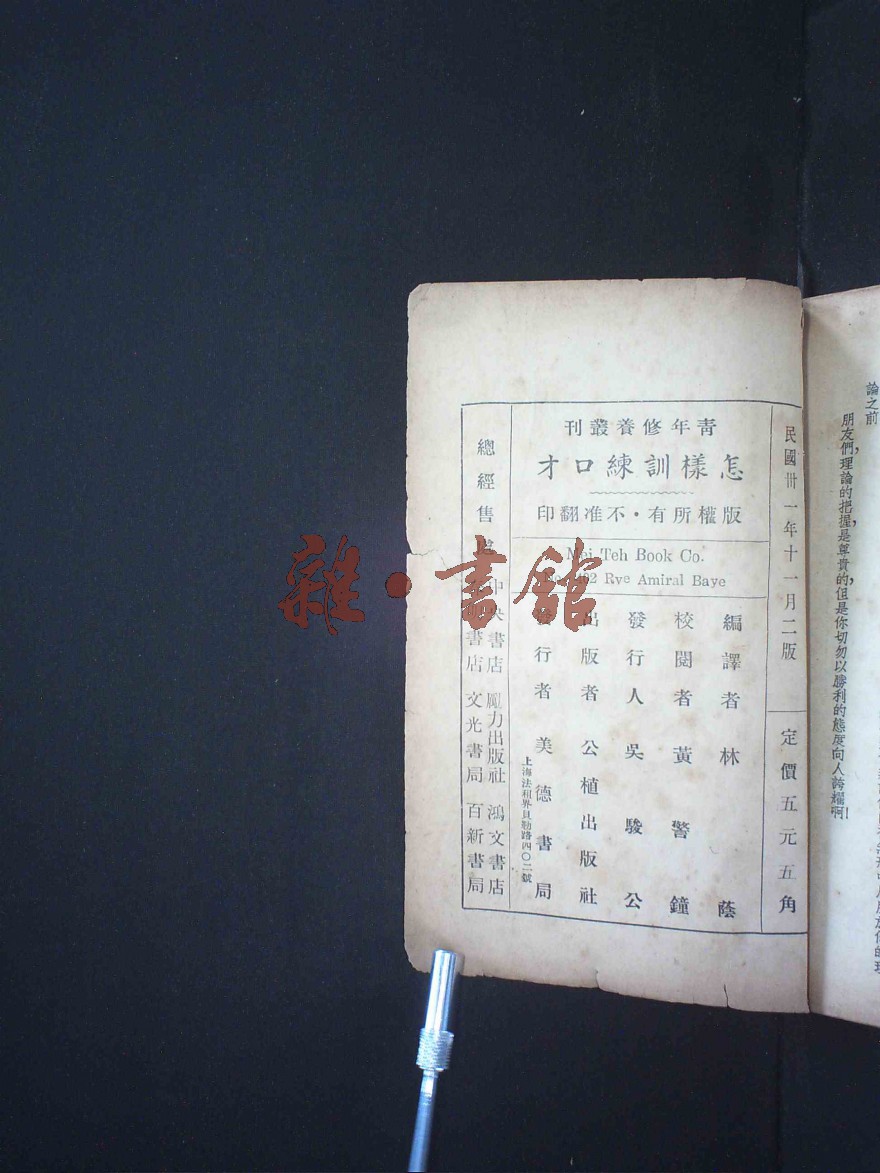 論之前
朋友們,理論的把握,是尊貴的,但是你切勿以勝利的態度向人誇耀啊!
民國卅一年十一月二版
定價五元五角
青年修養叢刊
怎樣訓練口才
版權所有・不准翻印
Mei Teh Book Co.
402 Rve Amiral Baye
編譯者 林蔭
校閱者 黃警鐘
發行人 吳駿公
出版者 公植出版社
行者 美德書局
上海法租界貝勒路四〇二號
總經售處
中央書店 勵力出版社 鴻文書店
書店 文光書局 百新書局
雜・書館